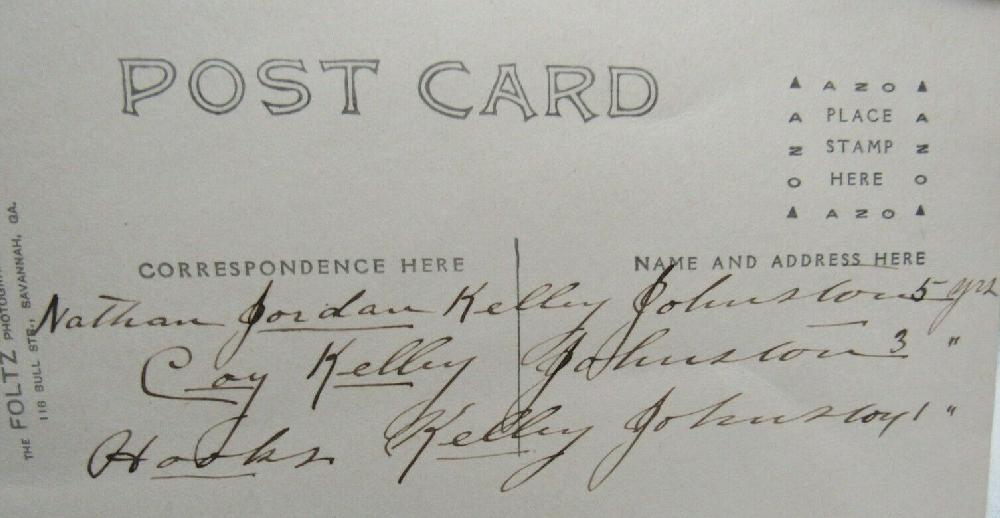 POST CARD
▲ A Z O ▲
A PLACE A
Z STAMP Z
O HERE O
▲ A Z O ▲
CORRESPONDENCE HERE
NAME AND ADDRESS HERE
Nathan Jordan Kelley Johnston 5 yrs
Coy Kelley Johnston 3 "
Hooks Kelley Johnston 1 "
THE FOLTZ
116 BULL STR., SAVANNAH, GA.